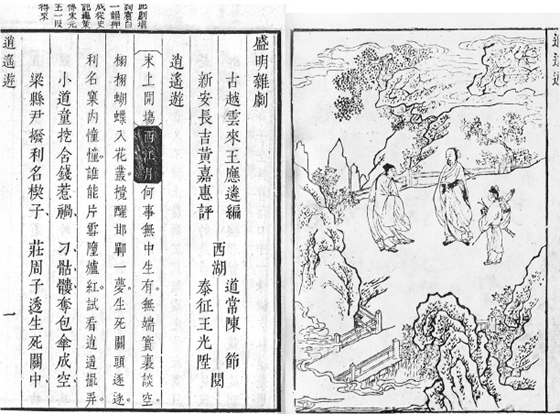 逍遙遊
盛明雜劇
古越雲來王應遴編 西湖 道常陳 節
新安長吉黃嘉惠評 泰征王光陞 閱
逍遙遊
末上開塲 西江月 何事無中生有無端實裏談空
栩栩蝴蝶入花叢攪醒邯鄲一夢生死關頭逐逐
利名窠內憧憧誰能片雪墮爐紅試看逍遙撮弄
小道童挖含錢惹禍 刁骷髏奪包傘成空
梁縣尹撥利名楔子 莊周子透生死關中
此劇填
詞賓白
一韻押
成從史
記龜筴
傳宋元
王一段
得來
逍遙遊 一